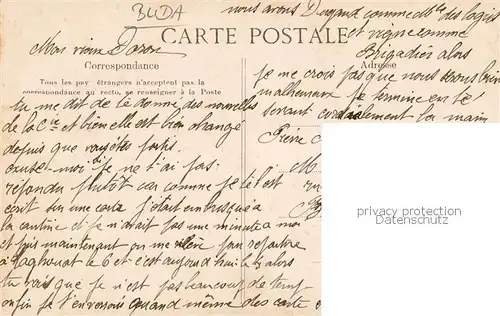 BUDA
nous avons Dagand comme Mle des logis
et vigne comme
Brigadier alors
Mon vieux
CARTE POSTALE
Correspondance
Adresse
Tous les pays étrangers n'acceptent pas la
correspondance au recto, se renseigner à la Poste
je me crois pas que nous soyons bien
malheureux Je termine en te
serrant cordialement la main
tu me dit de te donné des nouvelles
de la Cie et bien elle est bien changé
depuis que vous êtes partis.
excuse-moi si je ne t'ai pas
répondu plutôt car comme je te l'est
écrit sur une carte j'était embusqué à
la cantine et je n'avait pas une minute a moi
et puis maintenant on me relève
à Laghouat le 6 et c'est aujourd'hui le 4 alors
tu vois que je n'est pas beaucoup de temp
enfin je t'enverrais quand même des carte
privacy protection
Datenschutz